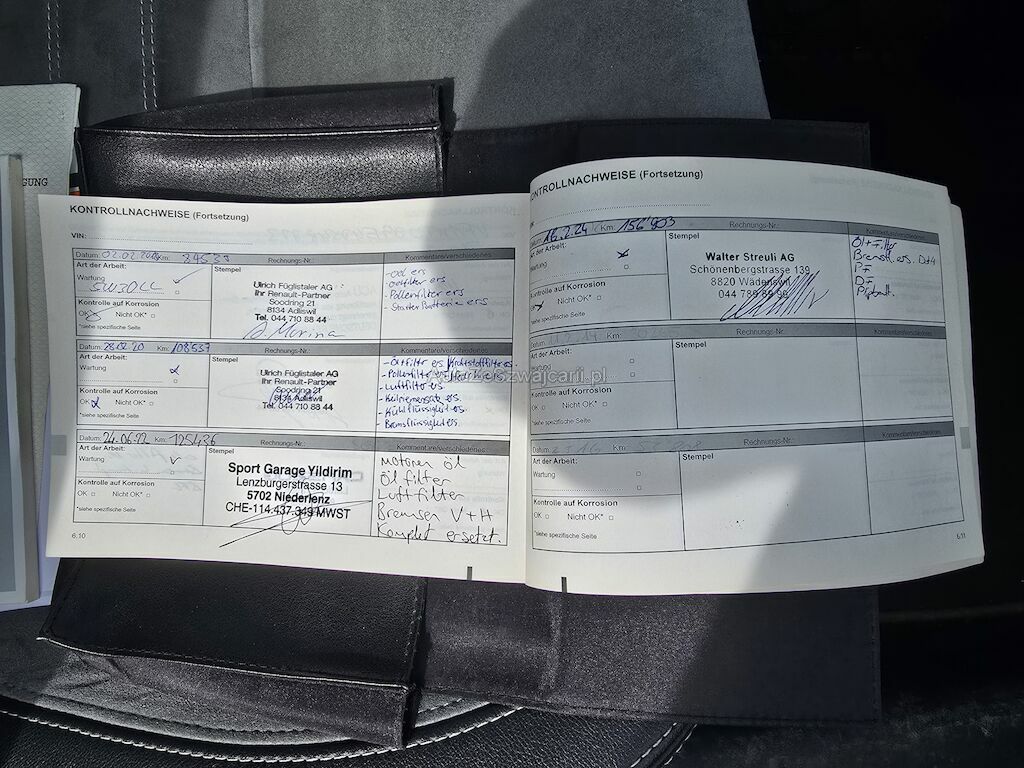 GUNG
KONTROLLNACHWEISE (Fortsetzung)
VIN:
Datum: Km: Rechnungs-Nr.: Kommentare/verschiedenes
Art der Arbeit:
Wartung
Stempel
Ulrich Füglistaler AG
Ihr Renault-Partner
Soodring 21
8134 Adliswil
Tel. 044 710 88 44
- Ölfilter ers
- Pollenfilter ers
- Starter Batterie ers
Kontrolle auf Korrosion
OK Nicht OK*
*siehe spezifische Seite
Datum: 28.02.20 Km: 108537 Rechnungs-Nr.: Kommentare/verschiedenes
Art der Arbeit:
Wartung
Stempel
Ulrich Füglistaler AG
Ihr Renault-Partner
Soodring 21
8134 Adliswil
Tel. 044 710 88 44
- Öl+filter ers
- Luftfilter ers.
- Keilriemensatz ers.
- Kühlflüssigkeit ers.
- Bremsflüssigkeit ers.
Kontrolle auf Korrosion
OK Nicht OK*
*siehe spezifische Seite
Datum: 24.06.22 Km: 125436 Rechnungs-Nr.: Kommentare/verschiedenes
Art der Arbeit:
Wartung
Stempel
Sport Garage Yildirim
Lenzburgerstrasse 13
5702 Niederlenz
CHE-114.437.349 MWST
Motoren öl
Öl filter
Luft filter
Bremsen V+H
Komplet ersetzt.
Kontrolle auf Korrosion
OK Nicht OK*
*siehe spezifische Seite
6.10
KONTROLLNACHWEISE (Fortsetzung)
Datum: 16.2.24 Km: 156'903 Rechnungs-Nr.: Kommentare/verschiedenes
Art der Arbeit:
Wartung
Stempel
Walter Streuli AG
Schönenbergstrasse 139
8820 Wädenswil
044 789 89 96
Öl+Filter
Bremsfl. ers.
PF
Kontrolle auf Korrosion
OK Nicht OK*
*siehe spezifische Seite
Datum: Km: Rechnungs-Nr.: Kommentare/verschiedenes
Art der Arbeit:
Wartung
Stempel
Kontrolle auf Korrosion
OK Nicht OK*
*siehe spezifische Seite
Datum: Km: Rechnungs-Nr.: Kommentare/verschiedenes
Art der Arbeit:
Wartung
Stempel
Kontrolle auf Korrosion
OK Nicht OK*
*siehe spezifische Seite
6.11